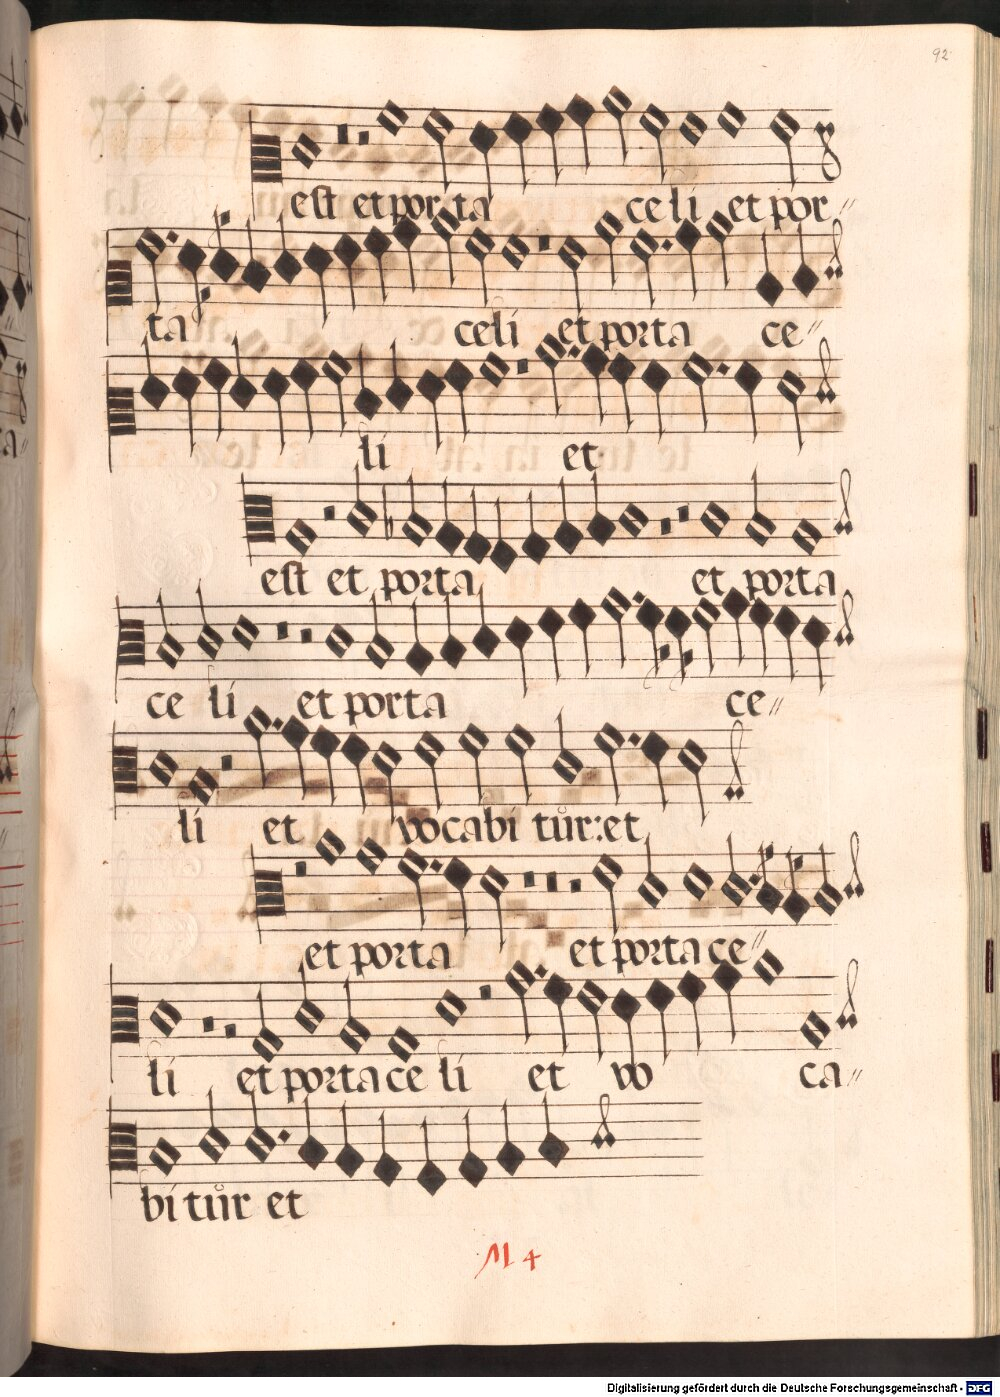 92
est et por ta ce li et por
ta celi et porta ce
li et
est et porta et porta
ce li et porta ce
li et vocabi tůr: et
et porta et porta ce
li et porta ce li et vo ca
bi tůr et
M 4
Digitalisierung gefördert durch die Deutsche Forschungsgemeinschaft - DFG